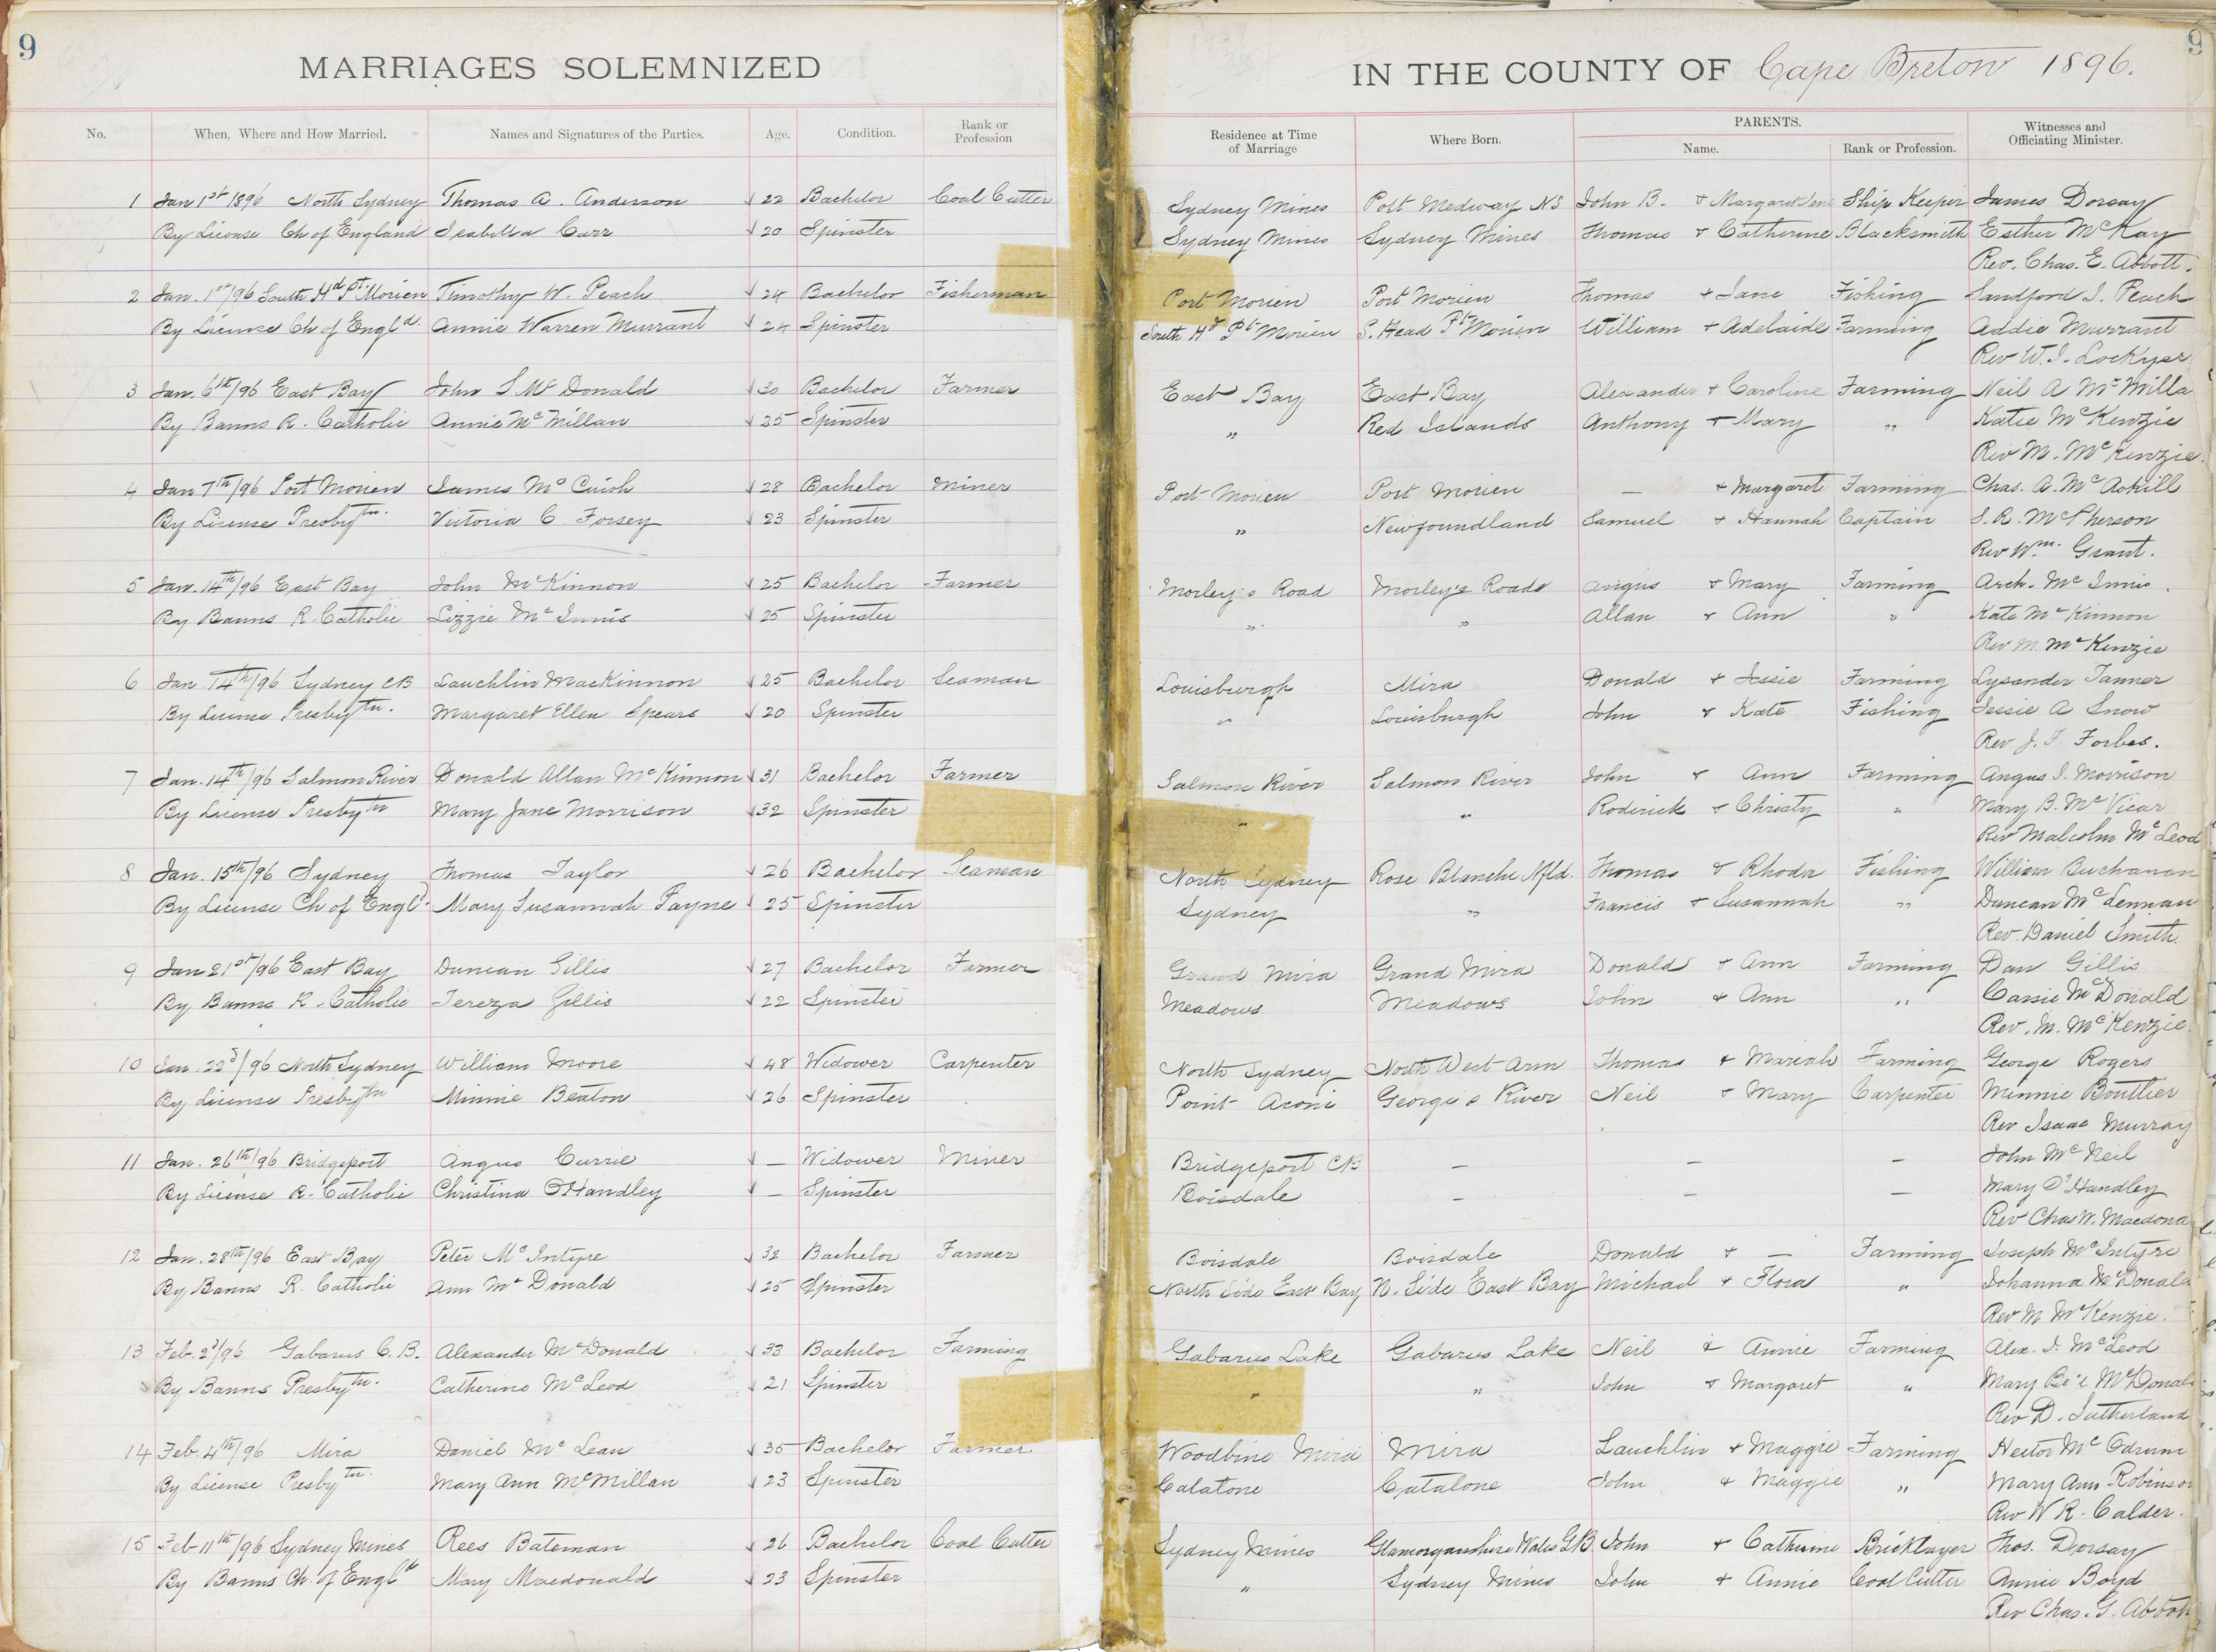 9
9
MARRIAGES SOLEMNIZED IN THE COUNTY OF Cape Breton 1896.
No. When, Where and How Married. Names and Signatures of the Parties. Age. Condition. Rank or Profession Residence at Time of Marriage Where Born. PARENTS. Name. Rank or Profession. Witnesses and Officiating Minister.
1 Jan 1st 1896 North Sydney Thomas A. Anderson 22 Bachelor Coal Cutter Sydney Mines Port Medway NS John B. & Margaret Jane Ship Keeper James Dorsay
By License Ch of England Isabella Carr 20 Spinster Sydney Mines Sydney Mines Thomas & Catherine Blacksmith Esther McKay
Rev. Chas. E. Abbott.
2 Jan. 1st/96 South Hd Pt. Morien Timothy W. Peach 24 Bachelor Fisherman Port Morien Port Morien Thomas & Jane Fishing Sandford J. Peach
By License Ch of Engld. Annie Warren Murrant 24 Spinster South Hd Pt Morien S. Head Pt Morien William & Adelaide Farming Addie Murrant
Rev W. J. Lockyer
3 Jan. 6th/96 East Bay John S McDonald 30 Bachelor Farmer East Bay East Bay Alexander & Caroline Farming Neil A McMilla
By Banns R. Catholic Annie McMillan 25 Spinster " Red Islands Anthony & Mary " Katie McKenzie
Rev M. McKenzie.
4 Jan 7th/96 Port Morien James McCuish 28 Bachelor Miner Port Morien Port Morien — & Margaret Farming Chas. A. McAskill
By License Presbytn. Victoria C. Forsey 23 Spinster " Newfoundland Samuel & Hannah Captain S. R. McPherson
Rev Wm. Grant.
5 Jan. 14th/96 East Bay John McKinnon 25 Bachelor Farmer Morley's Road Morley's Road Angus & Mary Farming Arch. McInnis.
By Banns R. Catholic Lizzie McInnis 25 Spinster " " Allan & Ann " Kate McKinnon
Rev M. McKenzie
6 Jan 14th/96 Sydney CB Lauchlin MacKinnon 25 Bachelor Seaman Louisburgh Mira Donald & Jessie Farming Lysander Tanner
By License Presbytn. Margaret Ellen Spears 20 Spinster " Louisburgh John & Kate Fishing Jessie A Snow
Rev J. F. Forbes.
7 Jan. 14th/96 Salmon River Donald Allan McKinnon 31 Bachelor Farmer Salmon River Salmon River John & Ann Farming Angus J. Morrison
By License Presbytn Mary Jane Morrison 32 Spinster " " Roderick & Christy " Mary B. McVicar
Rev Malcolm McLeod
8 Jan. 15th/96 Sydney Thomas Taylor 26 Bachelor Seaman North Sydney Rose Blanche Nfld. Thomas & Rhoda Fishing William Buchanan
By License Ch of Engld. Mary Susannah Fayne 25 Spinster Sydney " Francis & Susannah " Duncan McLennan
Rev. Daniel Smith.
9 Jan 21st/96 East Bay Duncan Gillis 27 Bachelor Farmer Grand Mira Grand Mira Donald & Ann Farming Dan Gillis
By Banns R. Catholic Tereza Gillis 22 Spinster Meadows Meadows John & Ann " Cassie McDonald
Rev. M. McKenzie.
10 Jan. 22d/96 North Sydney William Moore 48 Widower Carpenter North Sydney North West Arm Thomas & Mariah Farming George Rogers
By License Presbytn Minnie Beaton 26 Spinster Point Aconi George's River Neil & Mary Carpenter Minnie Bouttier
Rev Isaac Murray
11 Jan. 26th/96 Bridgeport Angus Currie — Widower Miner Bridgeport CB — — — John McNeil
By License R. Catholic Christina O'Handley — Spinster Boisdale — — — Mary O'Handley
Rev Chas W. Macdona
12 Jan. 28th/96 East Bay Peter McIntyre 32 Bachelor Farmer Boisdale Boisdale Donald & — Farming Joseph McIntyre
By Banns R. Catholic Ann McDonald 25 Spinster North Side East Bay N. Side East Bay Michael & Flora " Johanna McDonald
Rev M McKenzie.
13 Feb. 2d/96 Gabarus C.B. Alexander McDonald 33 Bachelor Farming Gabarus Lake Gabarus Lake Neil & Annie Farming Alex. J. McLeod
By Banns Presbytn. Catherine McLeod 21 Spinster " " John & Margaret " Mary Bell McDonal
Rev D. Sutherland
14 Feb. 4th/96 Mira Daniel McLean 35 Bachelor Farmer Woodbine Mira Mira Lauchlin & Maggie Farming Hector McOdrum
By License Presbytn. Mary Ann McMillan 23 Spinster Catalone Catalone John & Maggie " Mary Ann Robinson
Rev W R. Calder.
15 Feb 11th/96 Sydney Mines Rees Bateman 26 Bachelor Coal Cutter Sydney Mines Glamorganshire Wales GB John & Catherine Bricklayer Thos. Dorsay
By Banns Ch. of Engld Mary Macdonald 23 Spinster " Sydney Mines John & Annie Coal Cutter Annie Boyd
Rev Chas. G. Abbott